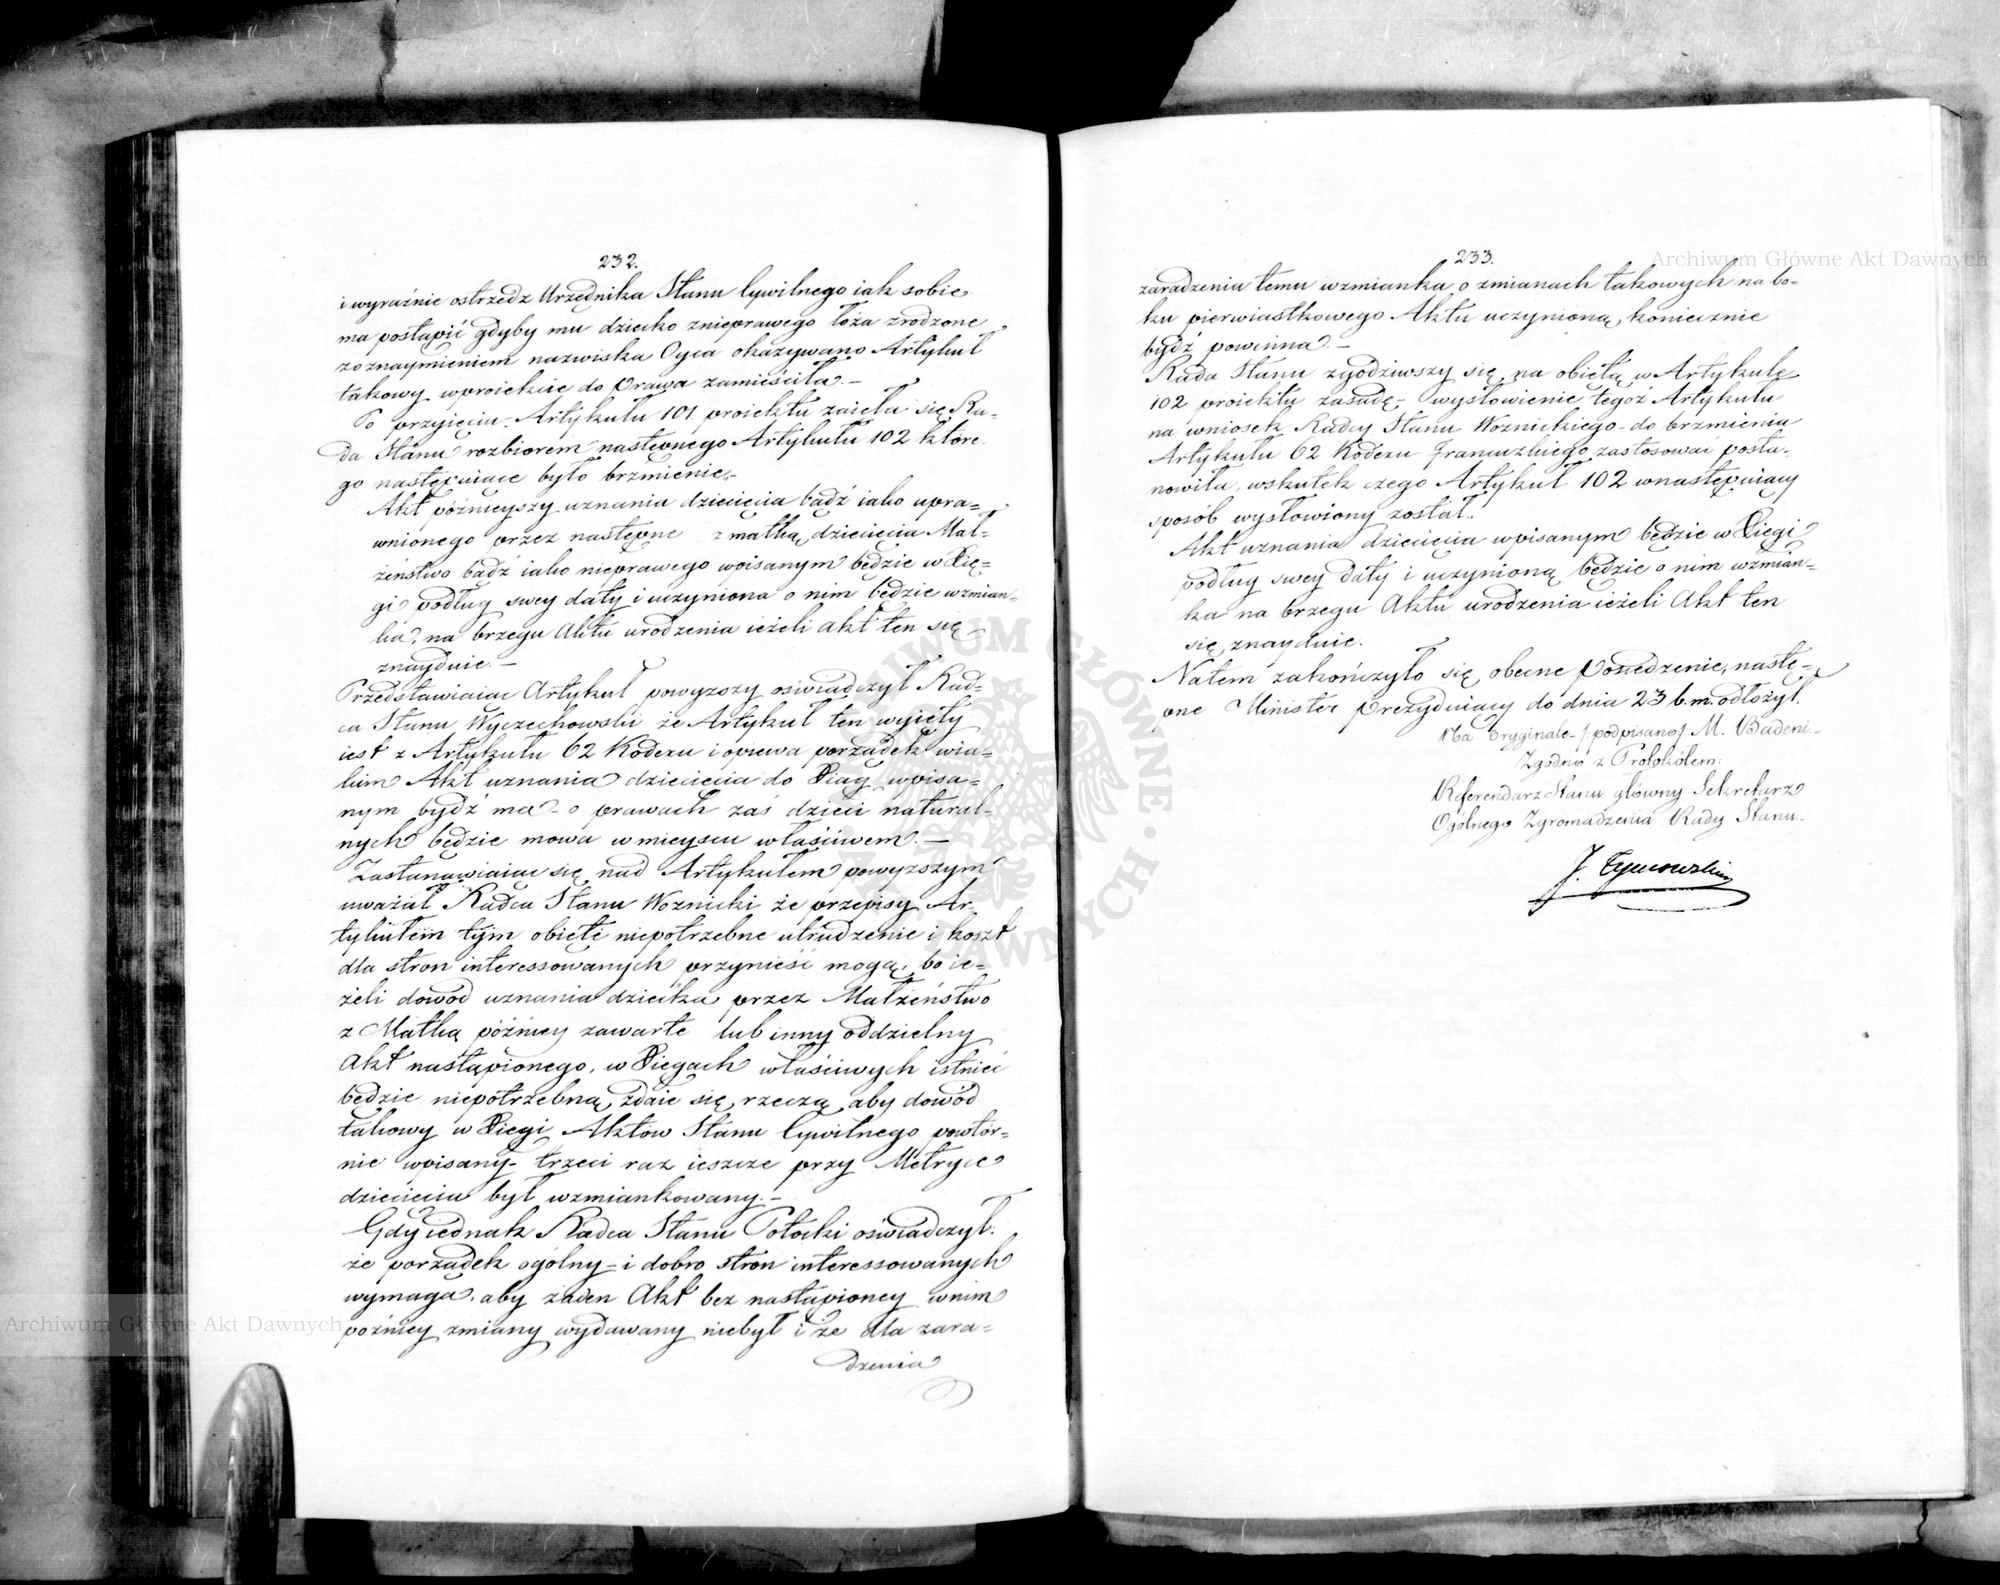 232.
i wyraźnie ostrzedz Urzędnika Stanu Cywilnego iak sobie
ma postąpić gdyby mu dziecko znieprawego łoża zrodzone
zoznaymieniem nazwiska Oyca okazywano Artykuł
takowy wproiekcie do Prawa zamieściła. –
Po przyjęciu Artykułu 101 proiektu zaięła się Ra-
da Stanu rozbiorem następnego Artykułu 102 które-
go następuiące było brzmienie.
Akt późnieyszy uznania dziecięcia bądź iako upra-
wnionego przez następne z matką dziecięcia Mał-
żeństwo bądź iako nieprawego wpisanym będzie w Xię-
gi podług swey daty i uczyniona o nim będzie wzmian-
ka na brzegu Aktu urodzenia ieżeli akt ten się
znayduie. –
Przedstawiaiąc Artykuł powyzszy oświadczył Rad-
ca Stanu Wyczechowski że Artykuł ten wyięty
iest z Artykułu 62 Kodexu i opiewa porządek wia-
kim Akt uznania dziecięcia do Xiąg wpisa-
nym bydź ma – o prawach zaś dzieci natural-
nych będzie mowa w mieyscu właściwem. –
Zastanawiaiąc się nad Artykułem powyzszym
uważał Radca Stanu Woznicki że przepisy Ar-
tykułem tym obięte niepotrzebne utrudzenie i koszt
dla stron interessowanych przynieść mogą, bo ie-
żeli dowód uznania dziecka przez Małżeństwo
z Matką późniey zawarte lub inny oddzielny
Akt nastąpionego, w Xięgach właściwych istnieć
będzie niepotrzebną zdaie się rzeczą aby dowód
takowy w Xięgi Aktów Stanu Cywilnego powtór-
nie wpisany – trzeci raz ieszcze przy Metryce
dziecięcia był wzmiankowany. –
Gdy iednak Radca Stanu Potocki oświadczył:
że porządek ogólny – i dobro stron interessowanych
wymaga, aby żaden Akt bez nastąpioney wnim
poźniey zmiany wydawany niebył i że dla zara-
dzenia
233.
zaradzenia temu wzmianka o zmianach takowych na bo-
ku pierwiastkowego Aktu uczynioną koniecznie
bydź powinna. –
Rada Stanu zgodziwszy się na obiętą w Artykule
102 proiektu zasadę – wysłowienie tegoż Artykułu
na wniosek Radcy Stanu Woznickiego – do brzmienia
Artykułu 62 Kodexu Francuzkiego zastosować posta-
nowiła, wskutek czego Artykuł 102 wnastępuiący
sposób wysłowiony został.
Akt uznania dziecięcia wpisanym będzie w Xięgi
podług swey daty i uczynioną będzie o nim wzmian-
ka na brzegu Aktu urodzenia ieżeli Akt ten
się znayduie.
Natem zakończyło się obecne Posiedzenie, nastę-
pne Minister Prezyduiący do dnia 23 b. m. odłożył.
Na Oryginale – / podpisano / M. Badeni –
Zgodno z Protokółem:
Referendarz Stanu główny Sekretarz
Ogólnego Zgromadzenia Rady Stanu –
J. Tymowski
Archiwum Główne Akt Dawnych
Archiwum Główne Akt Dawnych
ARCHIWUM GŁÓWNE AKT DAWNYCH